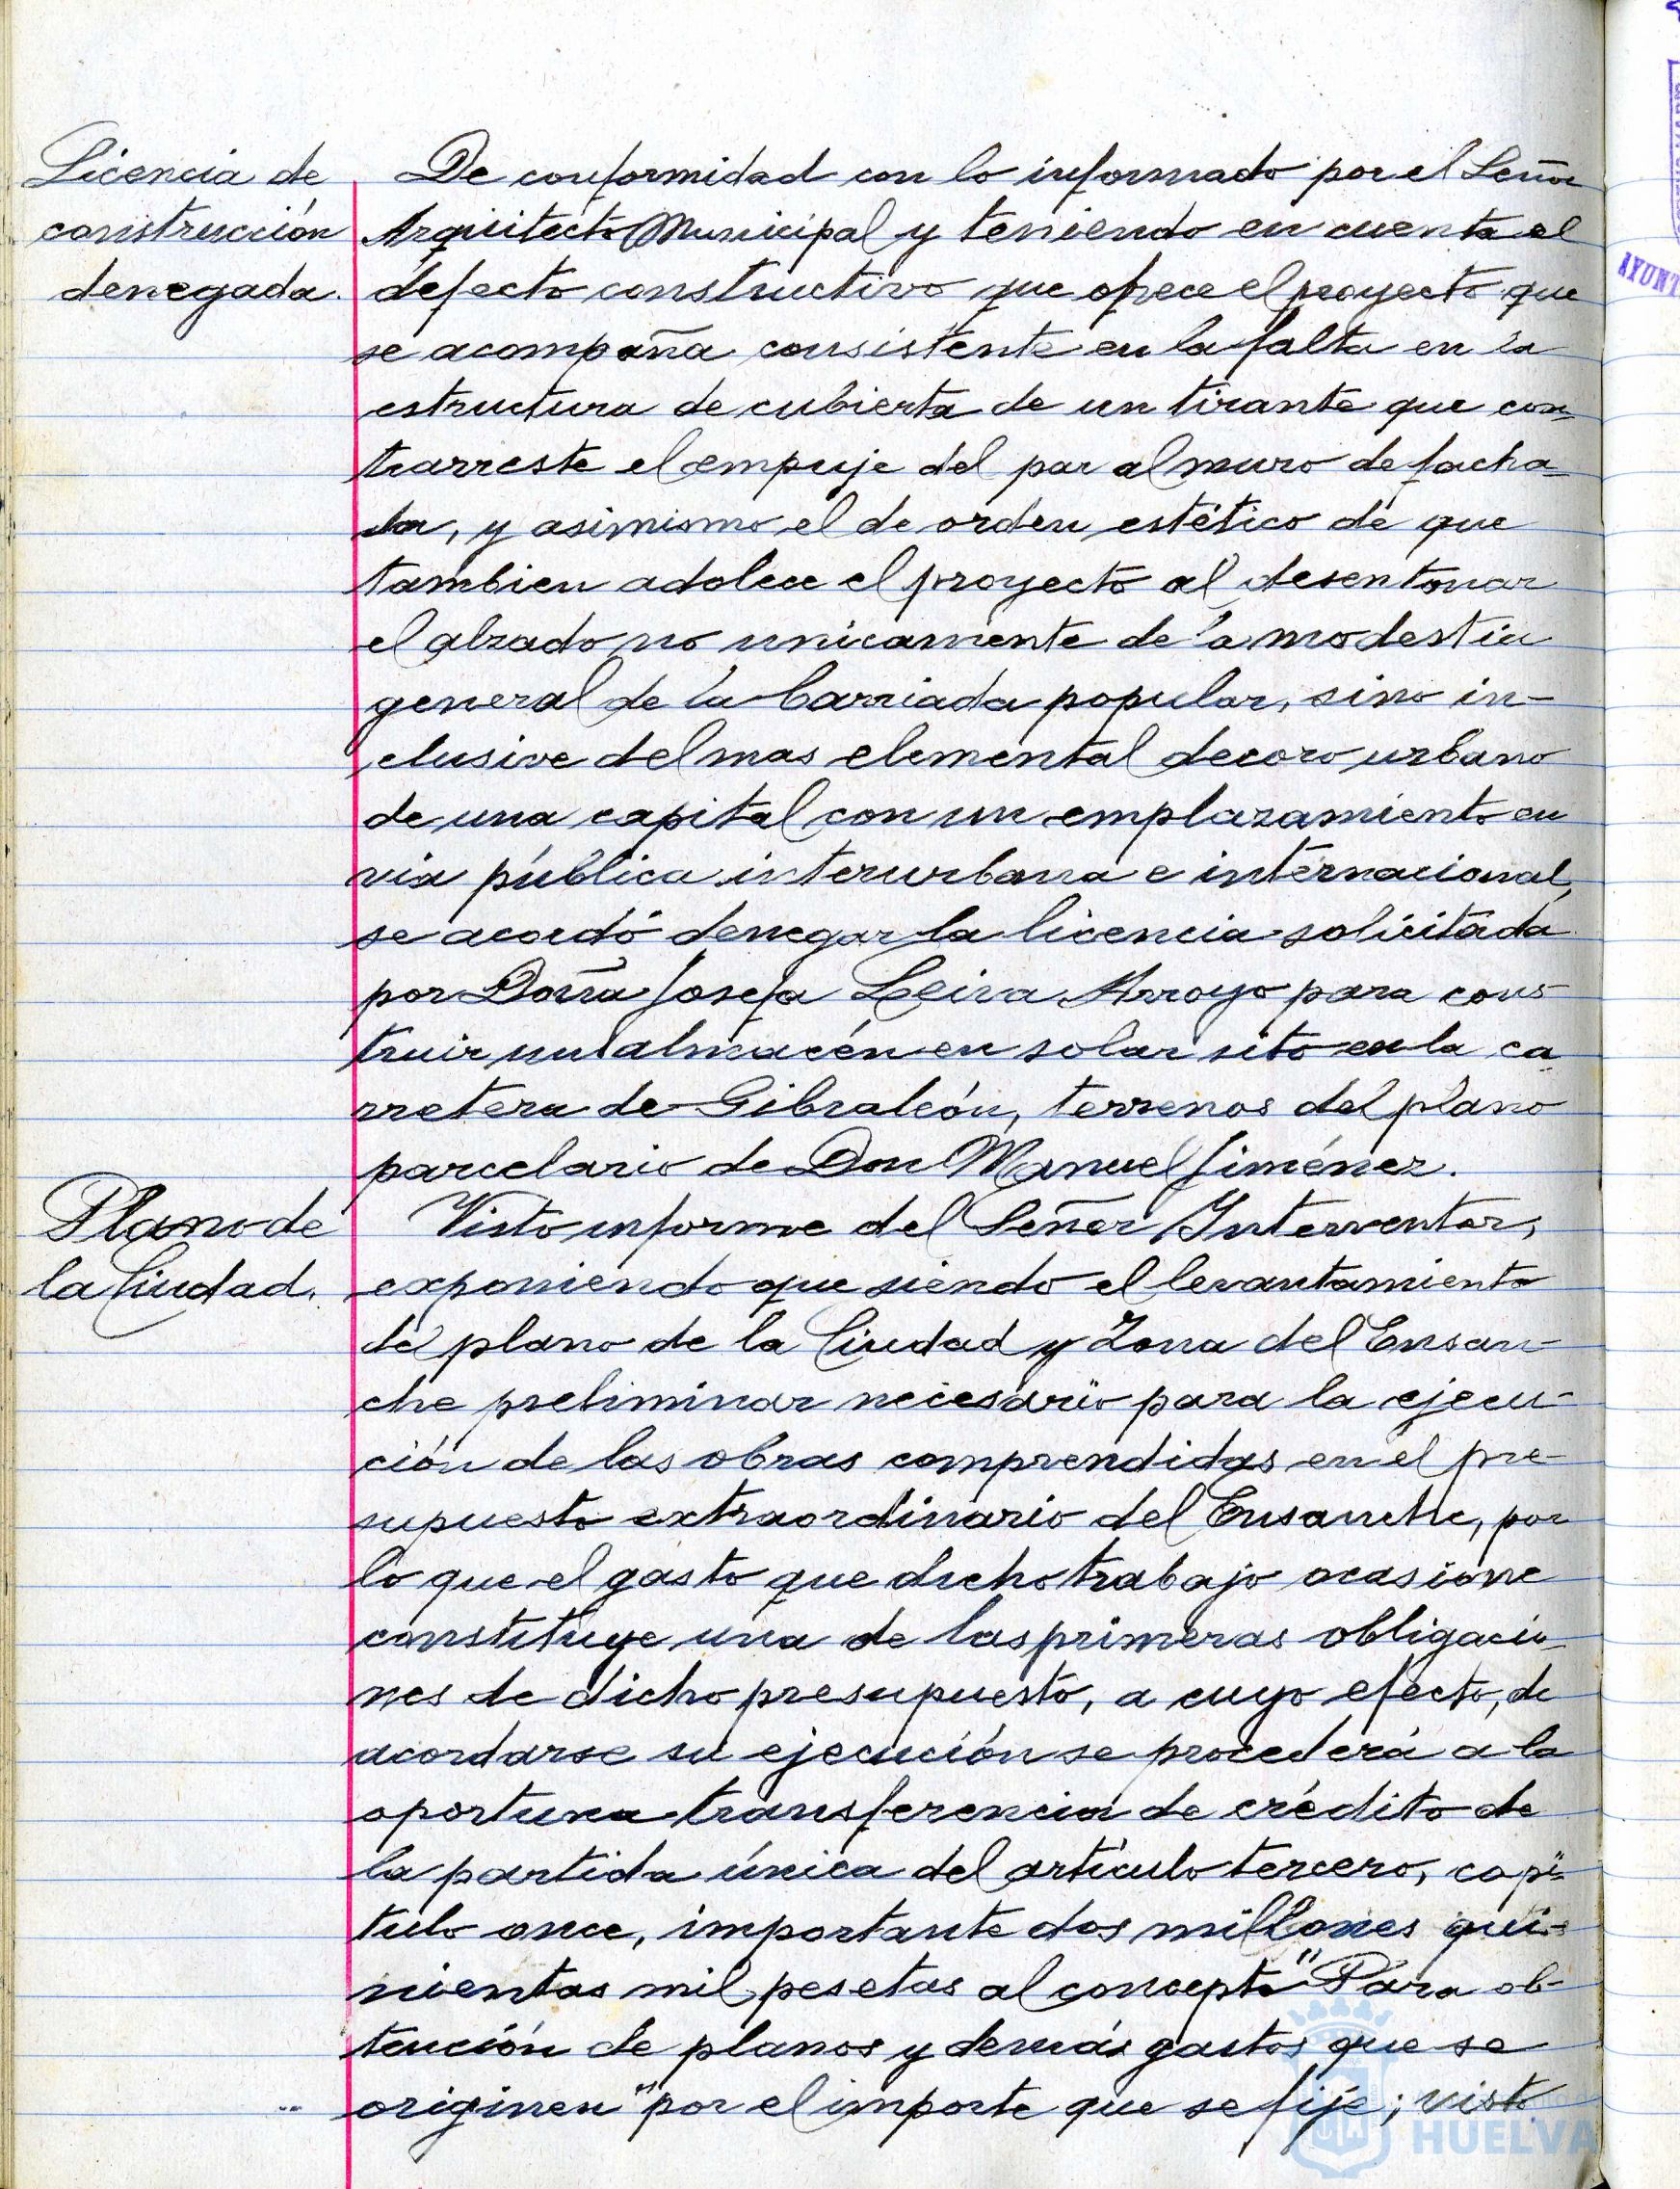 Licencia de
construcción
denegada.
De conformidad con lo informado por el Señor
Arquitecto Municipal y teniendo en cuenta el
defecto constructivo que ofrece el proyecto que
se acompaña consistente en la falta en la
estructura de cubierta de un tirante que con-
trarreste el empuje del par al muro de facha-
da, y asimismo el de orden estético de que
tambien adolece el proyecto al desentonar
el alzado no unicamente de la modestia
general de la barriada popular, sino in-
clusive del mas elemental decoro urbano
de una capital con un emplazamiento en
via pública interurbana e internacional,
se acordó denegar la licencia solicitada
por Doña Josefa Leiva Arroyo para cons-
truir un almacén en solar sito en la ca-
rretera de Gibraleón, terrenos del plano
parcelario de Don Manuel Jiménez.
Plano de
la Ciudad.
Visto informe del Señor Interventor,
exponiendo que siendo el levantamiento
de plano de la Ciudad y Zona del Ensan-
che preliminar necesario para la ejecu-
ción de las obras comprendidas en el pre-
supuesto extraordinario del Ensanche, por
lo que el gasto que dicho trabajo ocasione
constituye una de las primeras obligacio-
nes de dicho presupuesto, a cuyo efecto, de
acordarse su ejecución se procederá a la
oportuna transferencia de crédito de
la partida única del artículo tercero, capí-
tulo once, importante dos millones qui-
nientas mil pesetas al concepto "Para ob-
tención de planos y demás gastos que se
originen" por el importe que se fije; visto
HUELVA
AYUNT